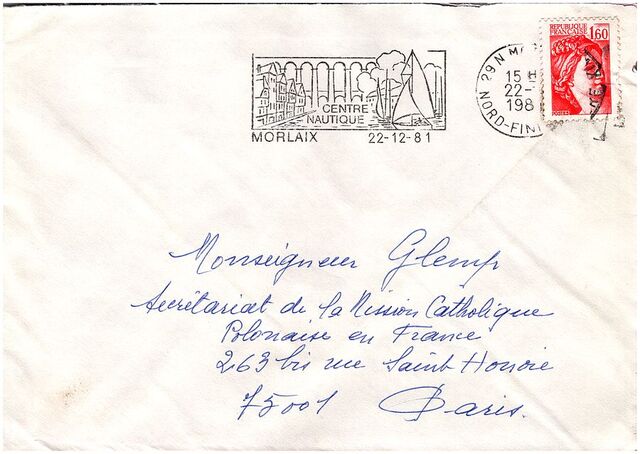 CENTRE
NAUTIQUE
MORLAIX 22-12-81
29 N M
15 H
22-
198
NORD-FINI
REPUBLIQUE
FRANCAISE
1,60
POSTES
Monseigneur Glemp
Secrétariat de la Mission Catholique
Polonaise en France
263 bis rue Saint Honoré
75001 Paris.